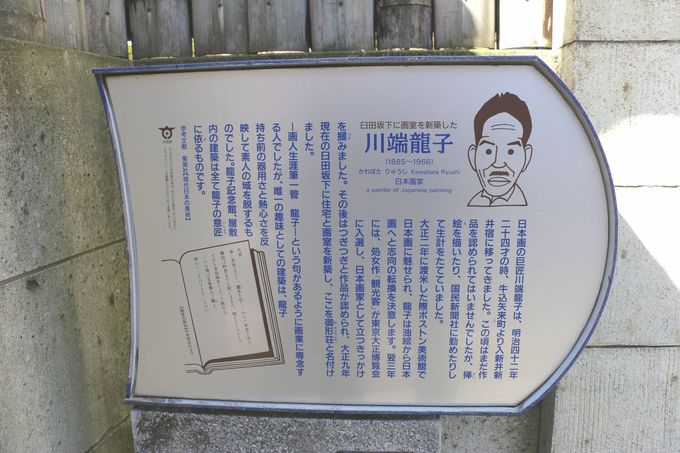 臼田坂下に画室を新築した
川端龍子
(1885〜1966)
かわばた りゅうし Kawabata Ryushi
日本画家
a painter of Japanese painting
日本画の巨匠川端龍子は、明治四十二年
二十四才の時、牛込矢来町より入新井新
井宿に移ってきました。この頃はまだ作
品を認められてはいませんでしたが、挿
絵を描いたり、国民新聞社に勤めたりし
て生計をたてていました。
大正二年に渡米した際ボストン美術館で
日本画に魅せられ、龍子は油絵から日本
画へと志向の転換を決意します。翌三年
には、処女作「観光客」が東京大正博覧会
に入選し、日本画家として立つきっかけ
を摑みました。その後はつぎつぎと作品が認められ、大正九年
現在の臼田坂下に住宅と画室を新築し、ここを御形荘と名付け
ました。
―画人生涯筆一管 龍子―という句があるように画業に専念す
る人でしたが、唯一の趣味としての建築は、龍子
持ち前の器用さと熱心さを反
映して素人の域を脱するも
のでした。龍子記念館、屋敷
内の建築は全て龍子の意匠
に依るものです。
参考文献 集英社『現代日本の美術』